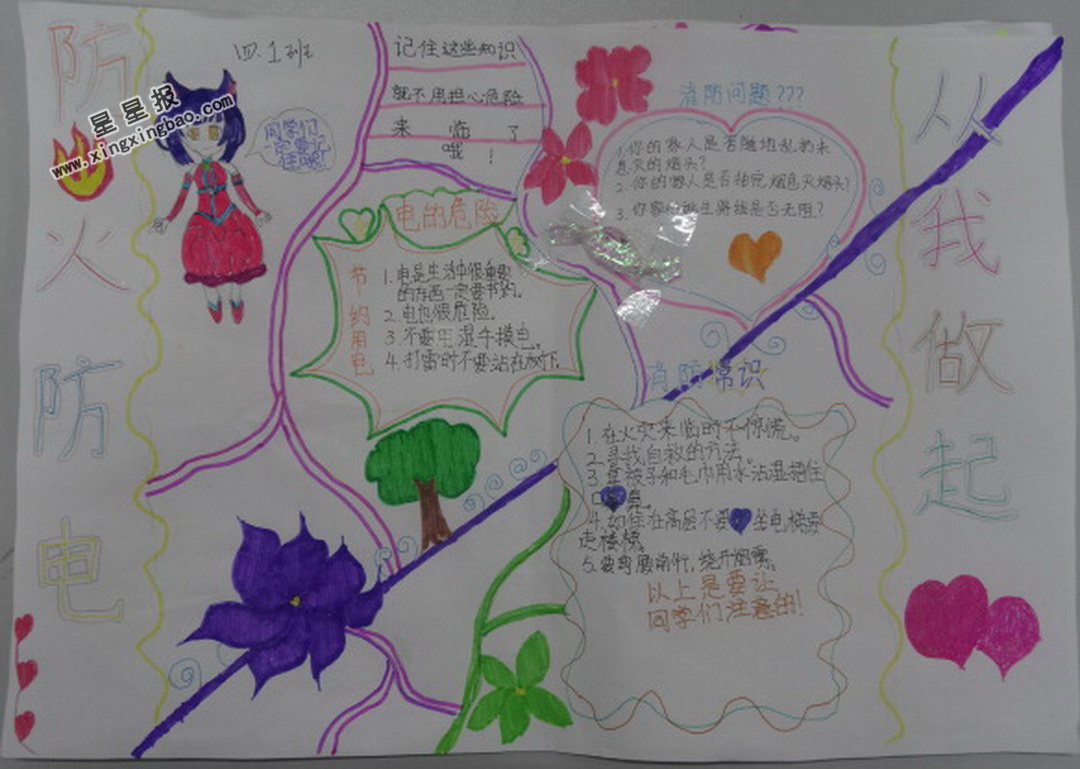 防火防电
星星报
www.xingxingbao.com
四.1班
同学们,
一定要记
住哦!
记住这些知识
就不用担心危险
来临了
哦!
电的危险
节约用电
1. 电是生活中很重要
的东西一定要节约。
2. 电也很危险。
3. 不要用湿手摸电。
4. 打雷时不要站在树下.
消防问题???
1.你的家人是否随地乱扔未
息灭的烟头?
2. 你的家人是否抽完烟息灭烟头?
3. 你家的逃生路线是否无阻?
消防常识
1. 在火灾来临时不惊慌。
2. 寻找自救的方法。
3. 拿被子和毛巾用水沾湿捂住
口鼻。
4. 如你在高层不要坐电梯要
走楼梯。
5. 要弯腰前行,绕开烟雾。
以上是要让
同学们注意的!
从我做起